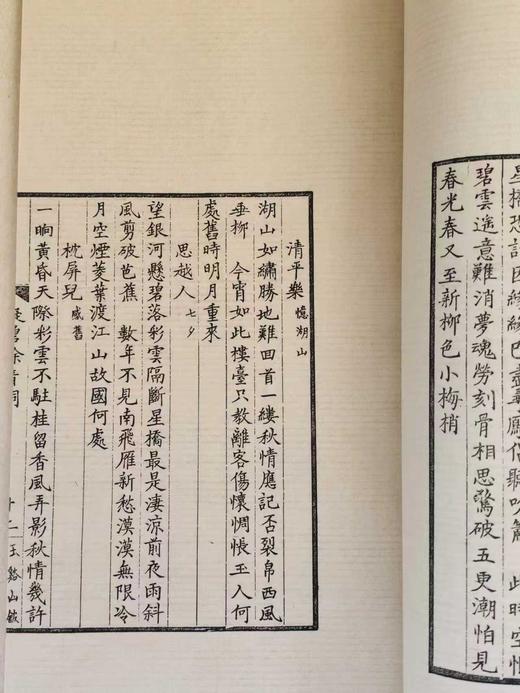 星橋恐誤因
碧雲遙意難消夢魂勞刻骨相思驚破五更潮怕見
春光春又至新柳色小梅梢
清平樂 憶湖山
湖山如繡勝地難回首一縷秋情應記否裂帛西風
垂柳 今宵如此樓臺只教離客傷懷惆悵玉人何
處舊時明月重來
思越人 七夕
望銀河懸碧落彩雲隔斷星橋最是淒涼前夜雨斜
風剪破芭蕉 數年不見南飛雁新愁漠漠無限冷
月空煙菱葉渡江山故國何處
枕屏兒 感舊
一晌黃昏天際彩雲不駐桂留香風弄影秋情幾許
碧餘音詞
十二 玉谿山館